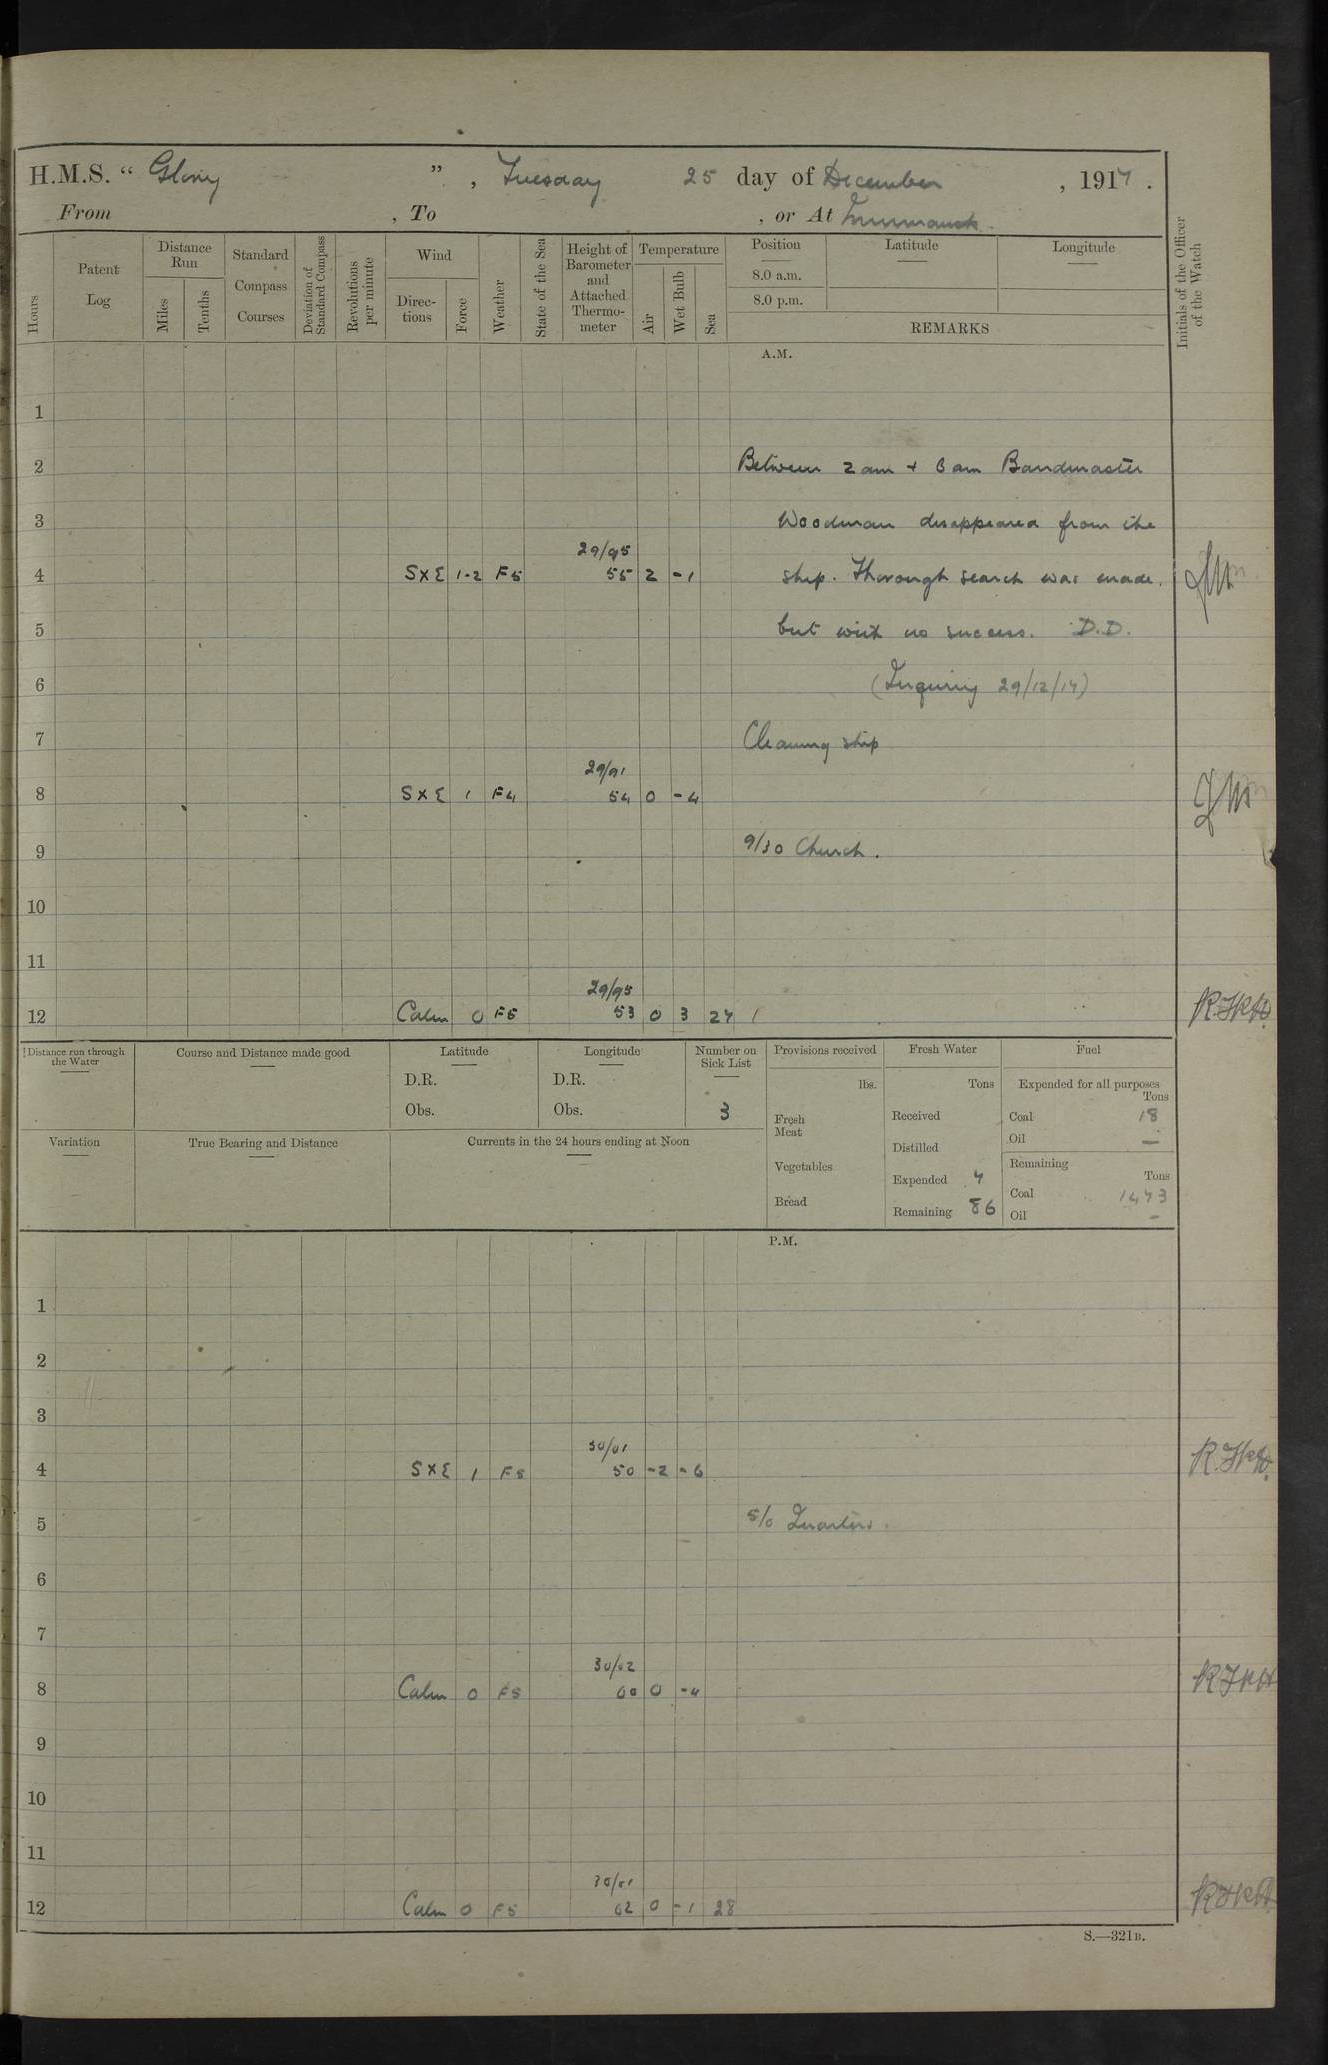 H.M.S. “ Glory ” , Tuesday 25 day of December , 1917 .
From , To , or At Murmansk.
Hours
Patent Log
Distance Run
Miles
Tenths
Standard Compass Courses
Deviation of Standard Compass
Revolutions per minute
Wind
Directions
Force
Weather
State of the Sea
Height of Barometer and Attached Thermometer
Temperature
Air
Wet Bulb
Sea
Position
Latitude
Longitude
8.0 a.m.
8.0 p.m.
REMARKS
Initials of the Officer of the Watch
A.M.
1
2 Between 2 am + 6 am Bandmaster
3 Woodman disappeared from the
29/95
4 SXE 1-2 F5 55 2 -1 ship. Thorough search was made.
5 but with no success. D.D.
6 (Inquiry 29/12/17)
7 Cleaning ship
29/91
8 SXE 1 F4 54 0 -4
9 9/30 Church.
10
11
29/95
12 Calm 0 F5 53 0 3 27 R.F.K.H.
Distance run through the Water
Course and Distance made good
Latitude
D.R.
Obs.
Longitude
D.R.
Obs.
Number on Sick List
3
Provisions received
lbs.
Fresh Meat
Vegetables
Bread
Fresh Water
Tons
Received
Distilled
Expended 7
Remaining 86
Fuel
Expended for all purposes
Tons
Coal 18
Oil —
Remaining
Tons
Coal 1473
Oil —
Variation
True Bearing and Distance
Currents in the 24 hours ending at Noon
P.M.
1
2
3
30/01
4 SXE 1 F5 50 -2 -6
5 5/0 Quarters.
6
7
30/02
8 Calm 0 F5 60 0 -4
9
10
11
30/01
12 Calm 0 F5 62 0 -1 28
S.—321B.